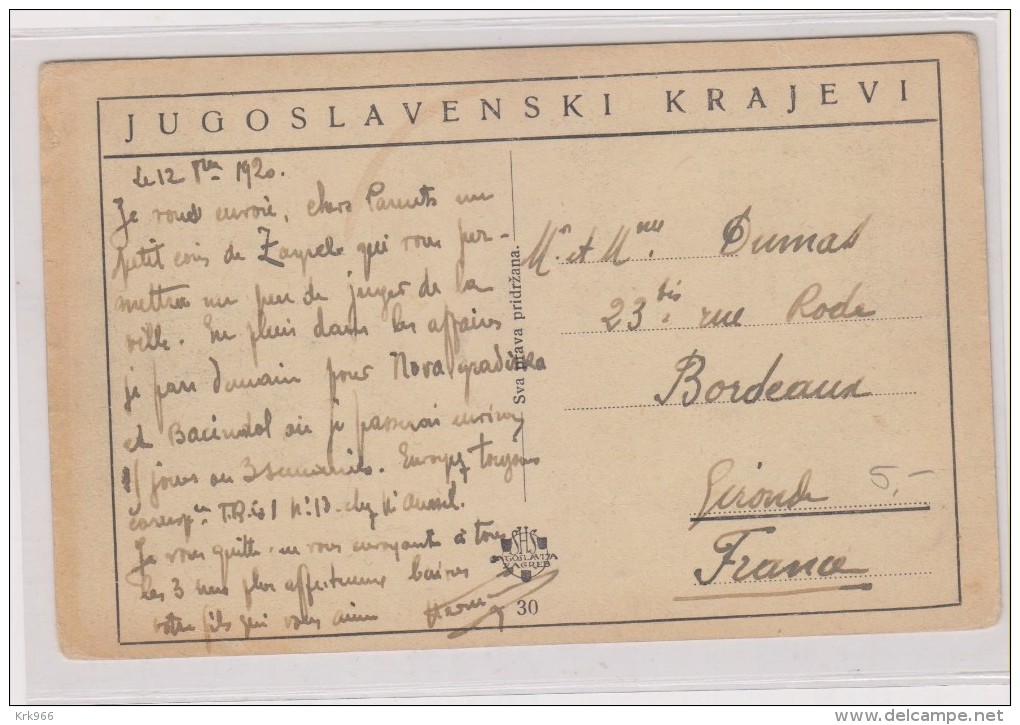 JUGOSLAVENSKI KRAJEVI
Le 12 1920.
Je vous envoie, chers Parents un
petit coin de Zagreb qui vous per-
mettra un peu de juger de la
ville. En plein dans les affaires
je pars demain pour Nova gradiska
et Bacindol où je passerai environ
15 jours ou 3 semaines. Envoyez toujours
corresp. n° 13 chez
Je vous quitte en vous envoyant à tous
les 3 mes plus affectueux baisers
votre fils qui vous aime
Sva prava pridržana.
Mr et Mme Dumas
23 bis rue Rode
Bordeaux
Gironde 5.-
France
SHS
JUGOSLAVIJA
ZAGREB
30
Krk966
delcampe.net